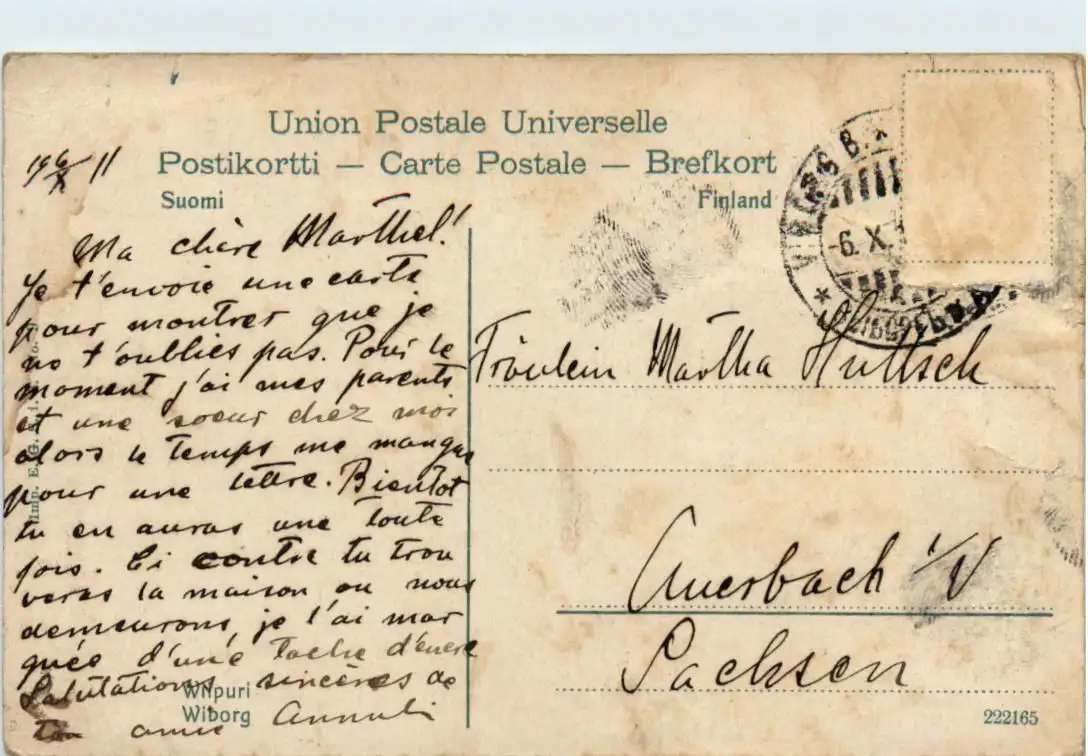 Union Postale Universelle
Postikortti — Carte Postale — Brefkort
Suomi
Finland
6/X 11
-6. X.
Ma chère Marthel!
Je t'envoie une carte
pour montrer que je
ne t'oublies pas. Pour le
moment j'ai mes parents
et une soeur chez moi
alors le temps me manque
pour une lettre. Bientôt
tu en auras une toute
fois. Ci contre tu trou
veras la maison ou nous
demeurons, je l'ai mar
quée d'une tache d'encre
Salutations sincères de
ton amie
Fräulein Martha
Auerbach i/V
Sachsen
Imp.
Wiipuri
Wiborg
222165